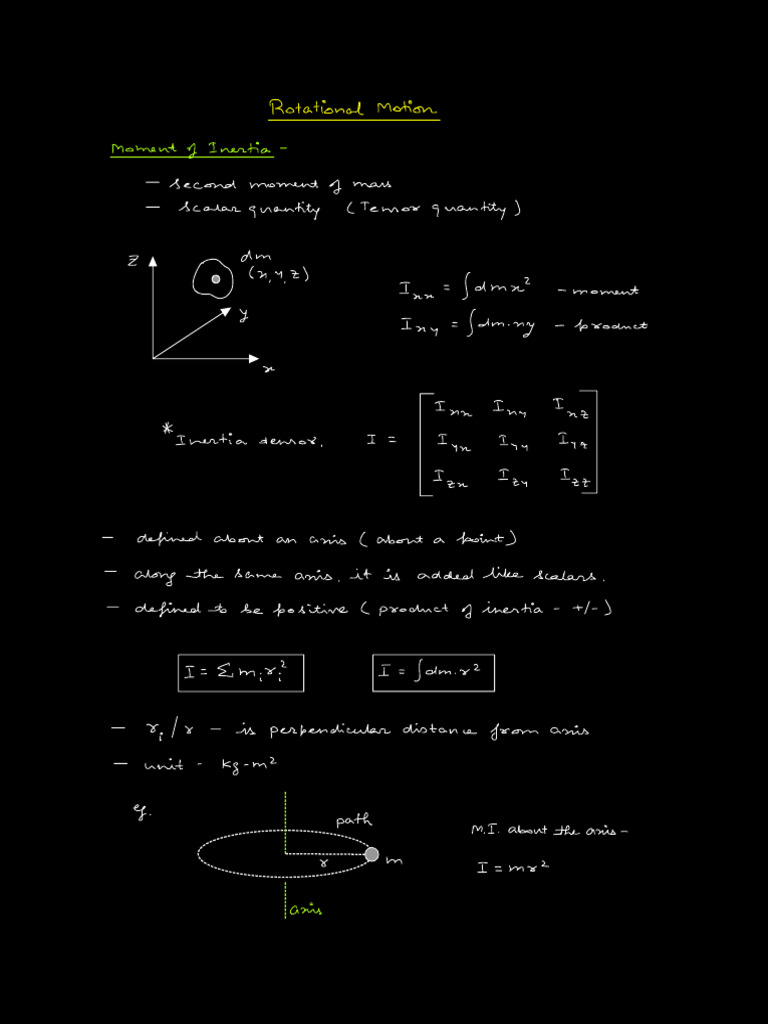 Rotational Motion
Moment of Inertia -
- second moment of mass
- scalar quantity (Tensor quantity)
Z
dm
(x, y, z)
y
x
I_xx = ∫dm x² - moment
I_xy = ∫dm.xy - product
* Inertia tensor. I = [ I_xx I_xy I_xz
I_yx I_yy I_yz
I_zx I_zy I_zz ]
- defined about an axis (about a point)
- along the same axis, it is added like scalars.
- defined to be positive (product of inertia - +/-)
I = Σ m_i r_i²
I = ∫dm.r²
- r_i/r - is perpendicular distance from axis
- unit - kg-m²
eg.
path
r
m
axis
M.I. about the axis -
I = mr²